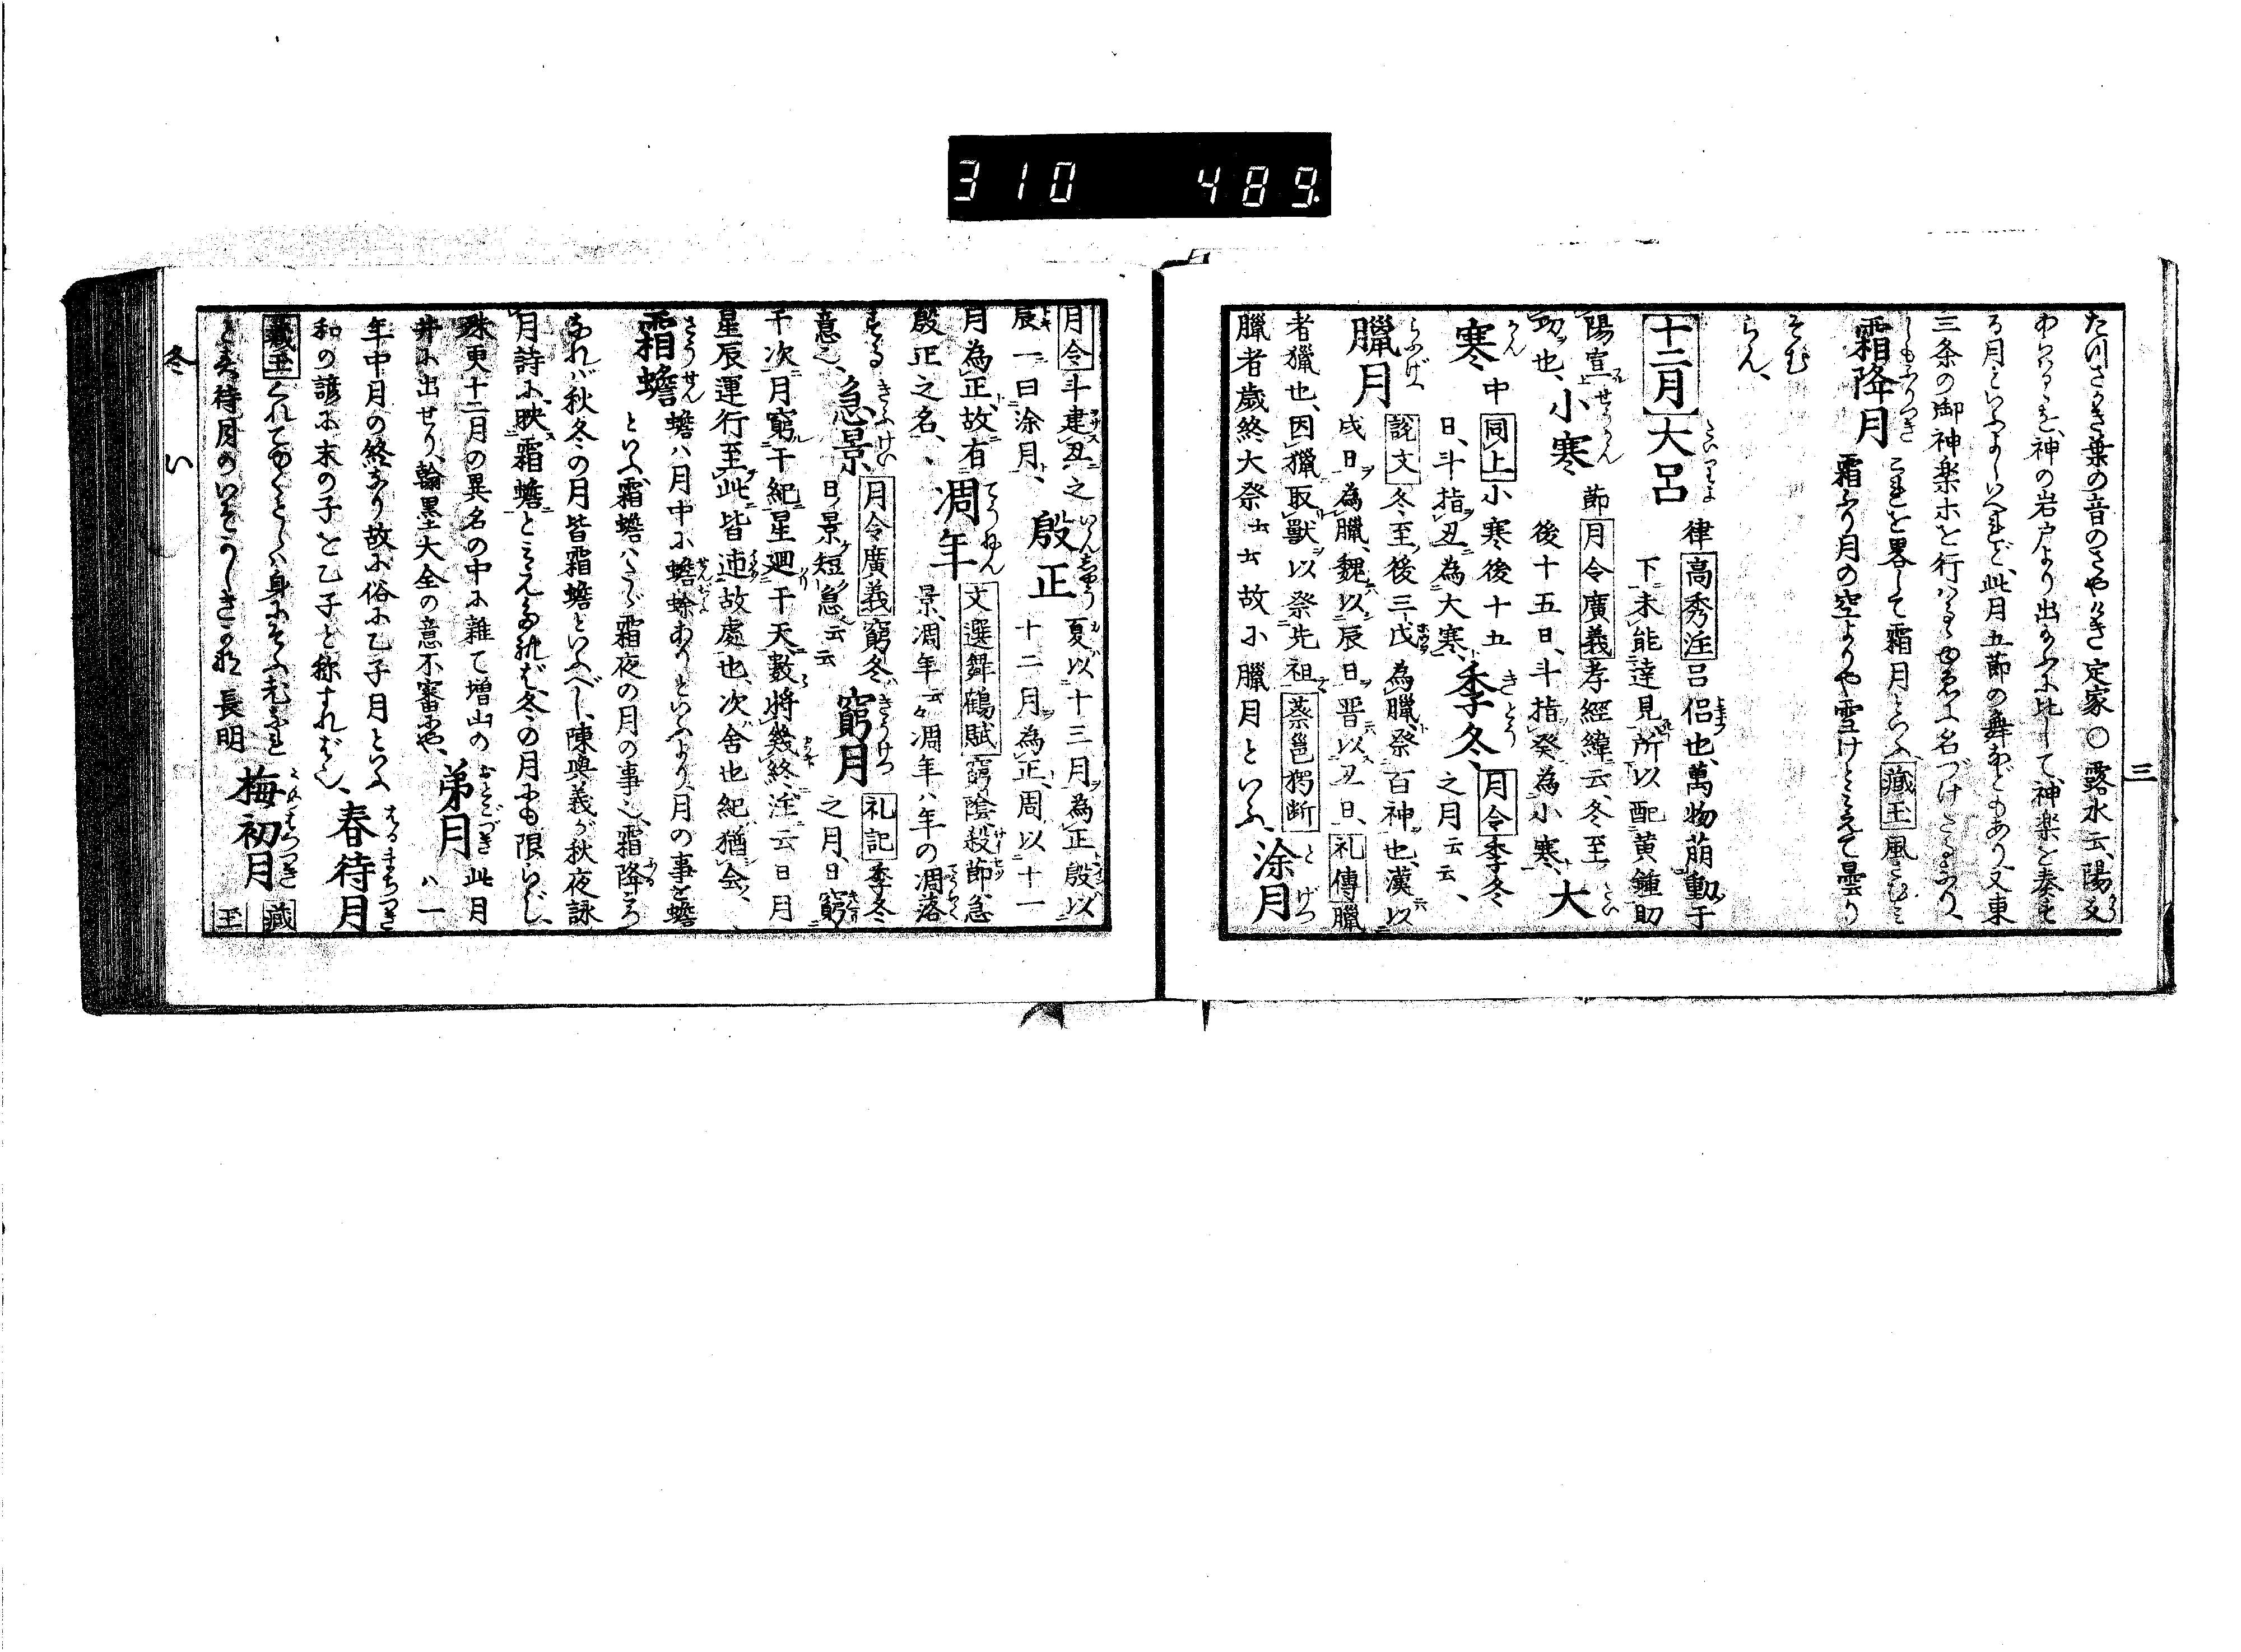 310 489
三
たつさかき葉の音のさやけき 定家〇露水云、陽気
あらハるゝを、神の岩戸より出給ふに比して、神楽を奏する
る月といふよしいへれど、此月五節の舞などもあり、又東
三条の御神楽ホを行ハるゝゆゑに名づけたるなり、
霜降月 しもふりつき これを畧して霜月といふ 藏玉 風さむミ
霜ふり月の空よりや雪けとみえて曇り
そむ
らん、
十二月 大呂 たいりよ 律 高秀注 呂侶也、萬物萠動于
下未能達見、所以配黄鍾助
陽宣
功也、小寒 せうかん 節 月令廣義 孝經緯云、冬至
後十五日、斗指癸為小寒、大
寒 たいかん 中 同上 小寒後十五
日、斗指丑為大寒、季冬、 きとう 月令 季冬
之月云云、
臘月 らふげつ 説文 冬至後三戌為臘、祭百神也、漢以
戌日為臘、魏以辰日、晋以丑日、礼傳 臘
者獵也、因獵取獸以祭先祖 蔡邕独断
臘者歳終大祭 云云 故に臘月といふ、涂月 とげつ
月令 斗建丑之
辰一曰涂月、殷正 いんせう 夏以十三月為正、殷以
十二月為正、周以十一
月為正、故有
殷正之名、凋年 てうねん 文選舞鶴賦 窮陰殺節、急
景凋年 云々 凋年ハ年の凋落
する
意也、急景 きふけい 月令廣義 窮冬
日ノ景短急 云云 窮月 きうげつ 礼記 季冬
之月、日窮
于次、月窮于紀、星廻于天、數將幾終、注云日月
星辰運行至此皆迊故處也、次舍也紀猶会、
霜蟾 さうせん 蟾ハ月中に蟾蜍ありといふより、月の事を蟾
といふ、霜蟾ハたゞ霜夜の月の事也、霜降ころ
なれバ秋冬の月皆霜蟾といふべし、陳與義が秋夜詠
月詩に、映霜蟾とみえたれば、冬の月にも限らじ、
殊更十二月の異名の中に雑て増山の
井に出せり、翰墨大全の意不審にや、弟月 おとゞづき 此月
ハ一
年中月の終なり故に俗に乙子月といふ
和の諺に末の子を乙子と称すれば也、春待月 はるまちつき
藏玉 くれてゆくとしハ身にそふ老なれ
ど春待月のいそがしきかな 長明 梅初月 うめはつつき 藏
玉
冬 い